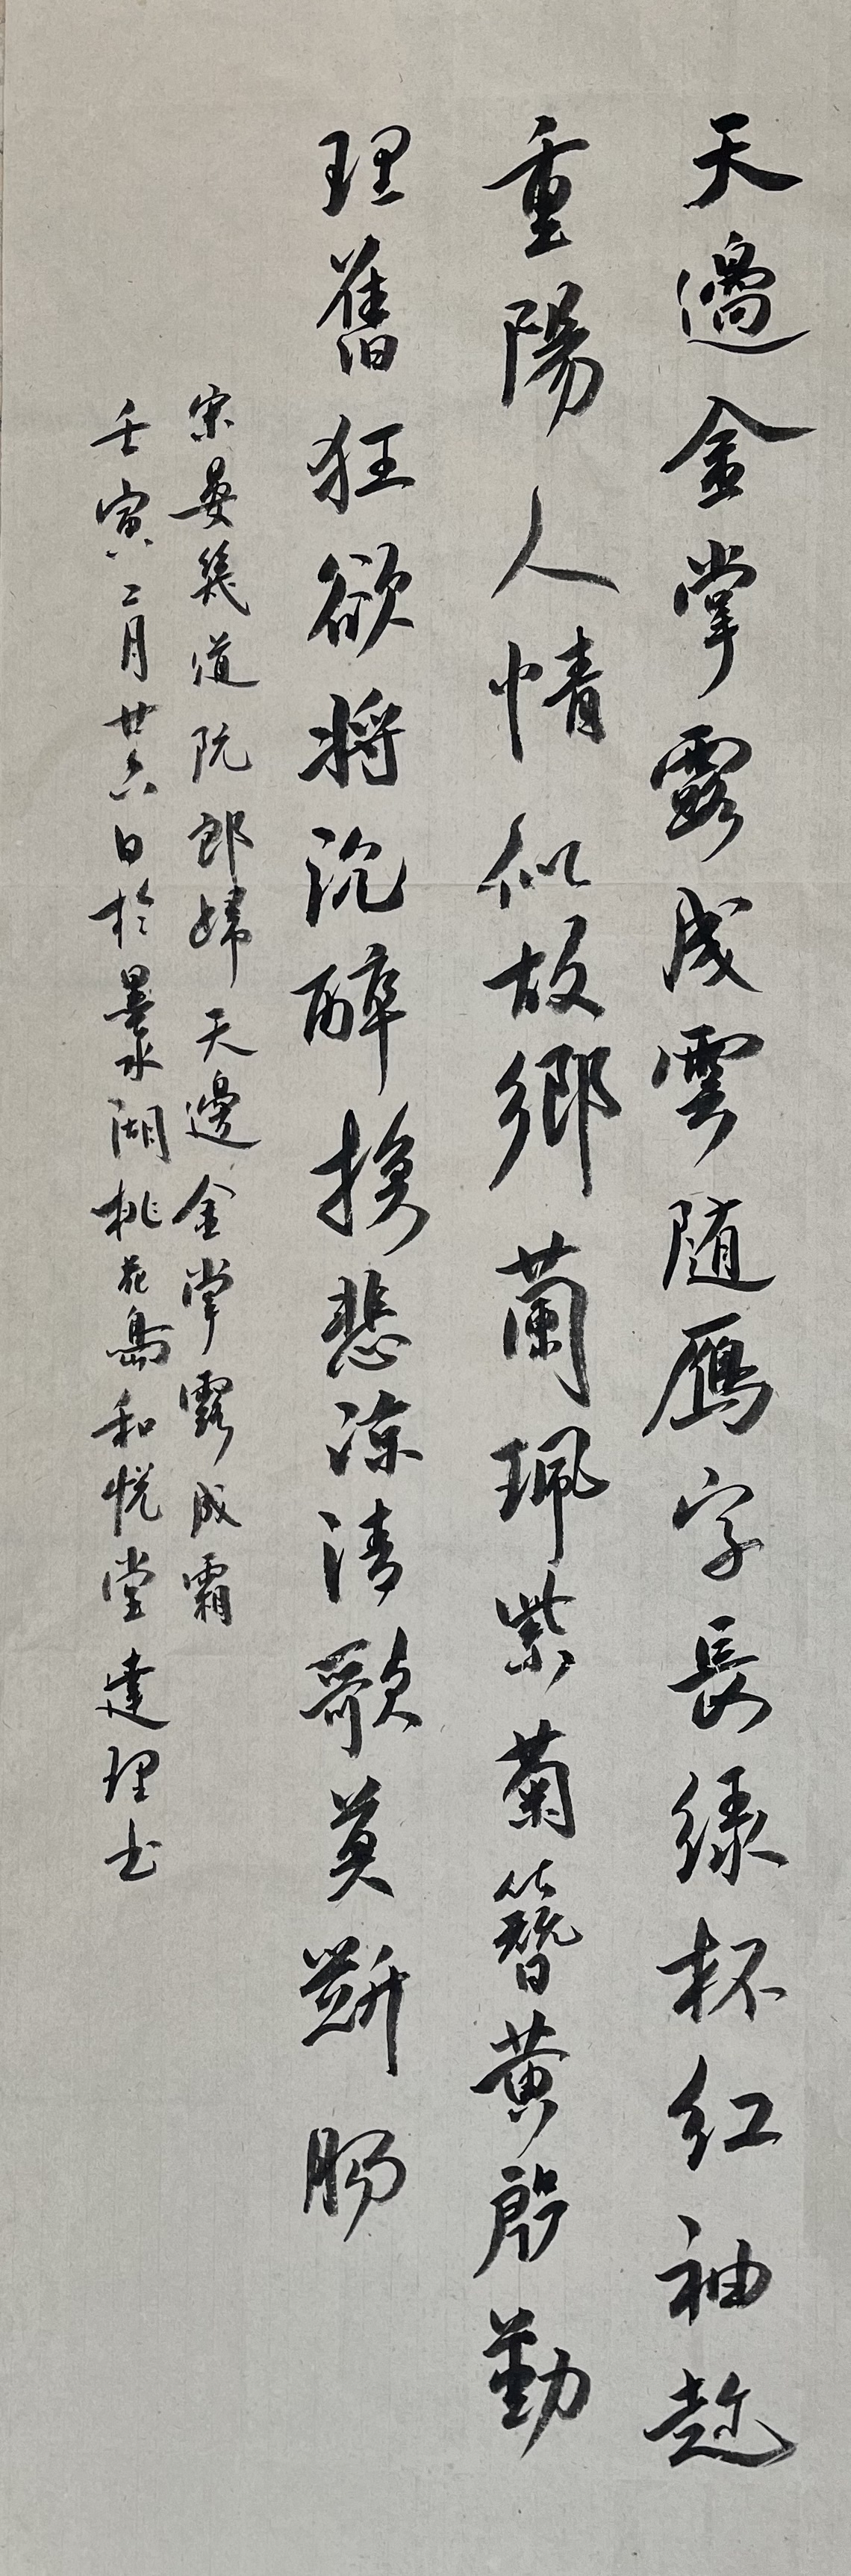 天邊金掌露成雲随鴈字長緑杯红袖趂
重陽人情似故鄉蘭珮紫菊簪黄殷勤
理舊狂欲将沉醉换悲涼清歌莫斷腸
宋晏幾道阮郎婦天邊金掌露成霜
壬寅二月廿六日於曓湖桃花島和悦堂達理书